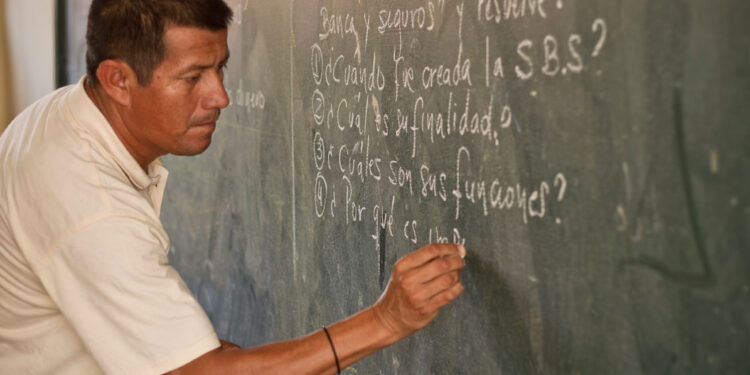 Banca y seguros? y resuelve:
① ¿Cuándo fue creada la S.B.S?
② ¿Cuál es su finalidad?
③ ¿Cuáles son sus funciones?
④ ¿Por qué es imp
dinero